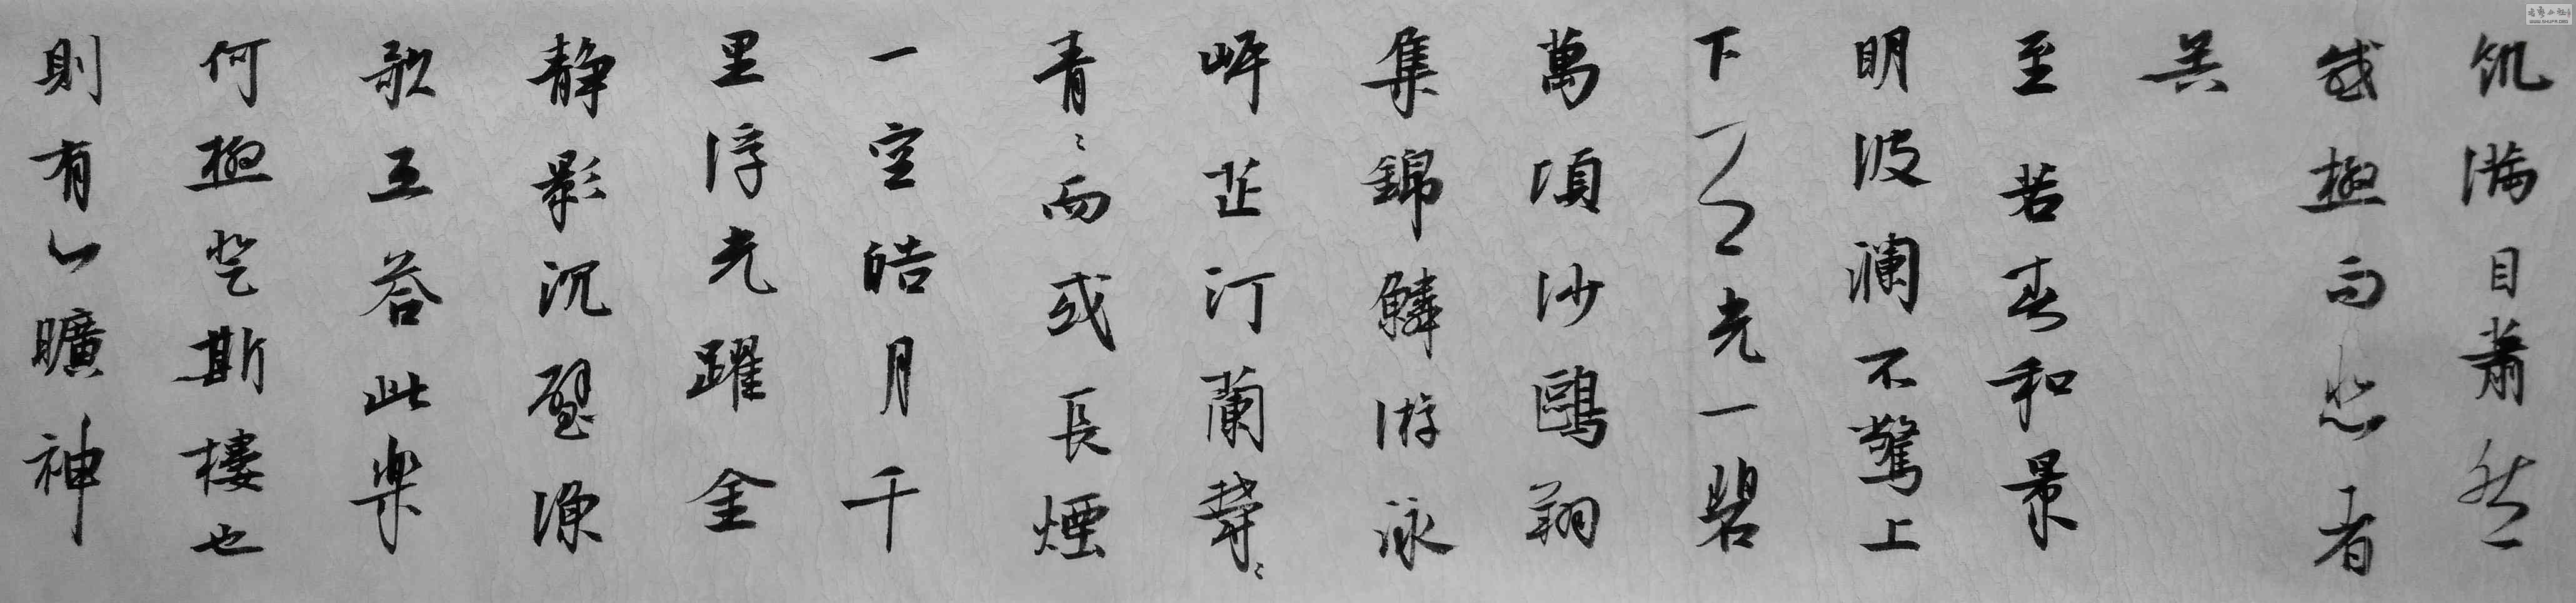 饥满目蕭然
感極而悲者
矣
至若春和景
明波瀾不驚上
下天光一碧
萬頃沙鷗翔
集錦鱗游泳
岸芷汀蘭欝〻
青〻而或長煙
一空皓月千
里浮光躍金
静影沉璧漁
歌互答此樂
何極登斯樓也
則有心曠神